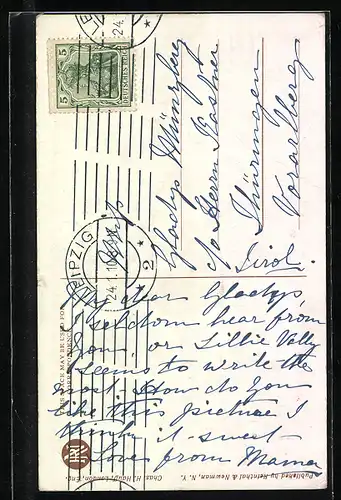 Gladys Münzberg
c/o Herrn Kastner
Thüringen
Vorarlberg
Tirol.
My dear Gladys,
I seldom hear from
you, or Lillie Vally
seems to write the
most. How do you
like this picture I
think it sweet
Love from Mama
LEIPZIG
2
5
5
DEUTSCHES REICH
THIS SPACE MAY BE USED FOR
CORRESPONDENCE
Published by Reinthal & Newman, N. Y.
Chas. H. Hauff, London, Eng.